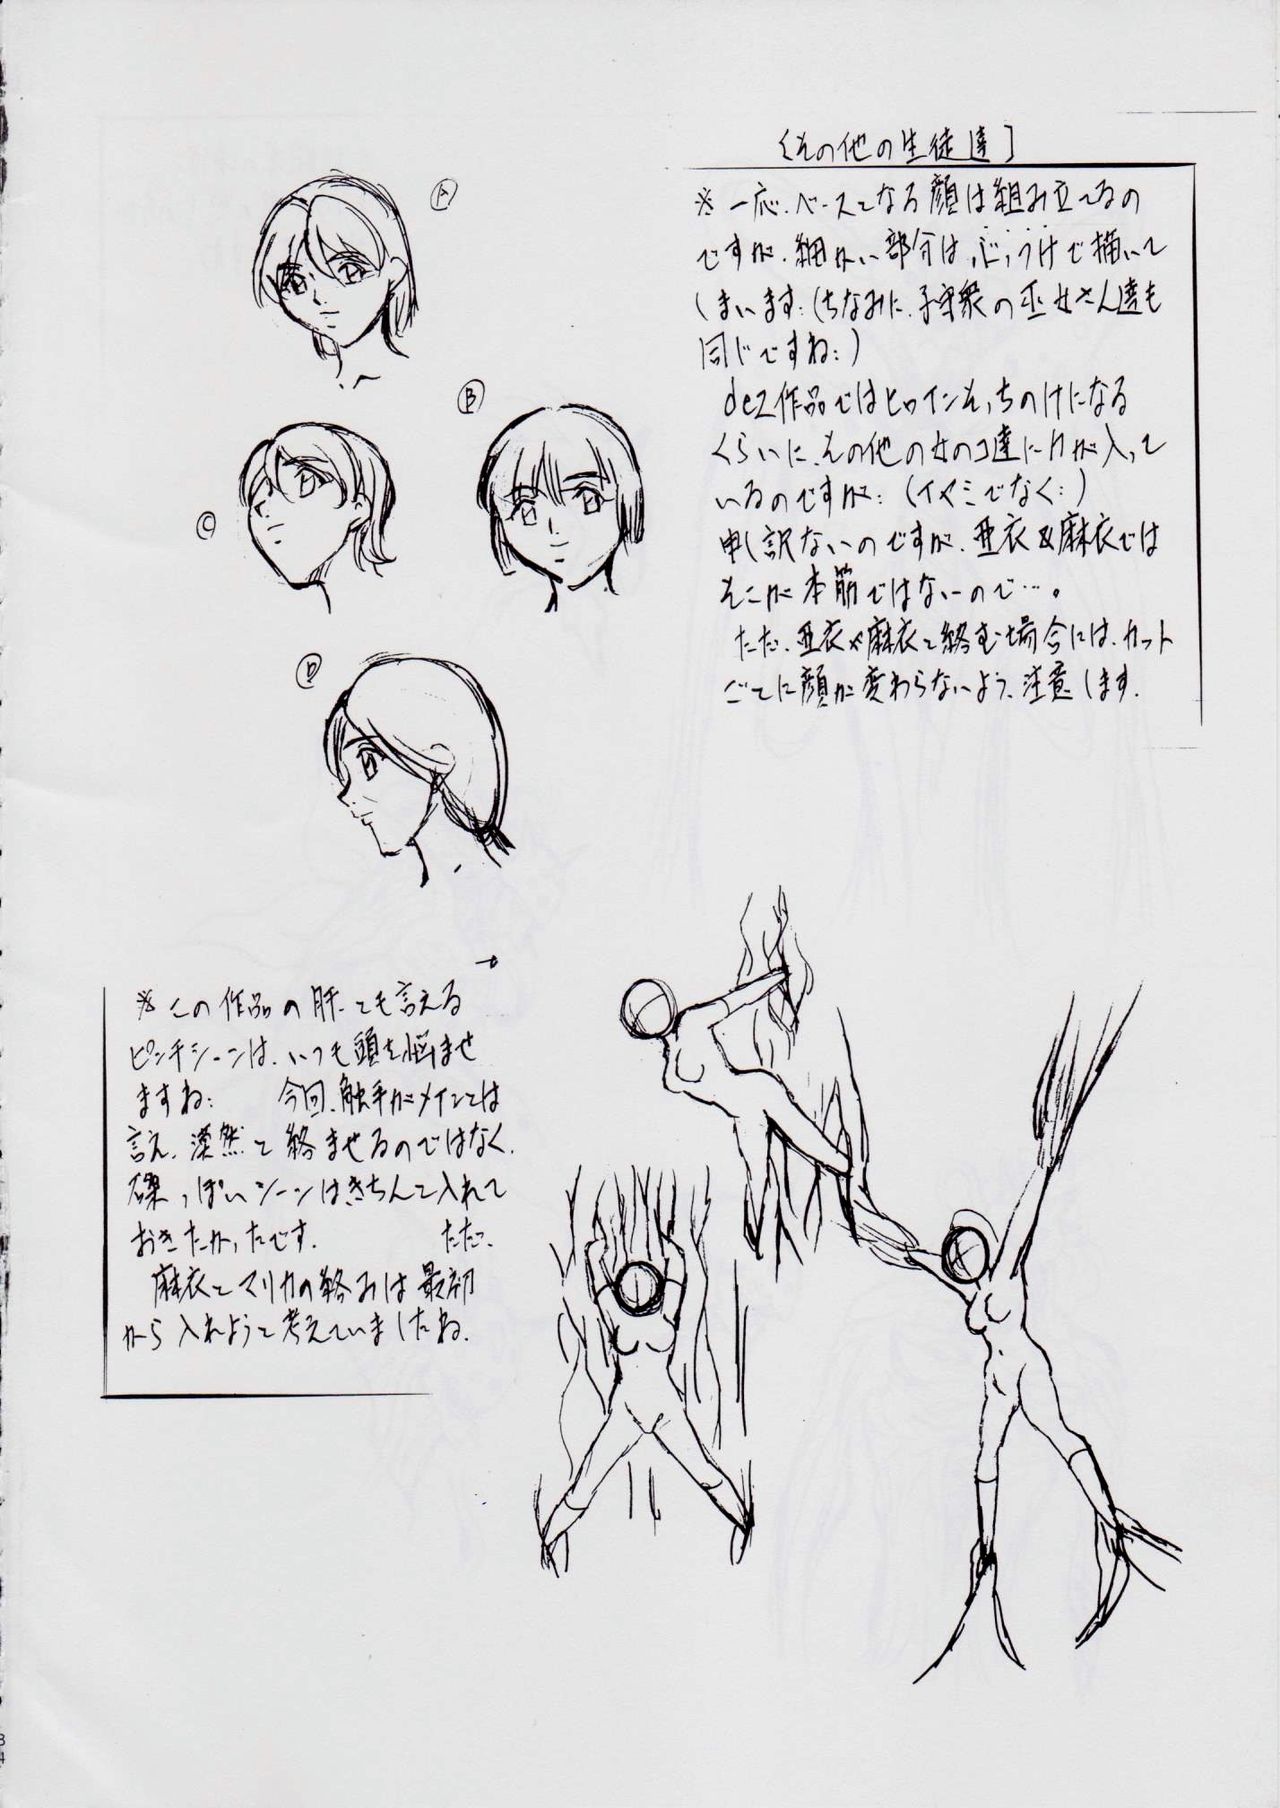 [その他の生徒達]
※一応、ベースとなる顔は組み立てるの
ですが、細かい部分は、ぶっつけで描いて
しまいます:(ちなみに、子守衆の巫女さん達も
同じですね:)
dez作品ではヒロインそっちのけになる
くらいに、その他の女のコ達に力が入って
いるのですが:(イヤミでなく:)
申し訳ないのですが、亜衣&麻衣では
そこが本筋ではないので…。
ただ、亜衣や麻衣と絡む場合には、カット
ごとに顔が変わらないよう、注意します.
A
B
C
D
※この作品の肝とも言える
ピンチシーンは、いつも頭を悩ませ
ますね: 今回、触手がメインとは
言え、漠然と絡ませるのではなく、
磔っぽいシーンはきちんと入れて
おきたかったです. ただ、
麻衣とマリカの絡みは最初
から入れようと考えていましたね.
34